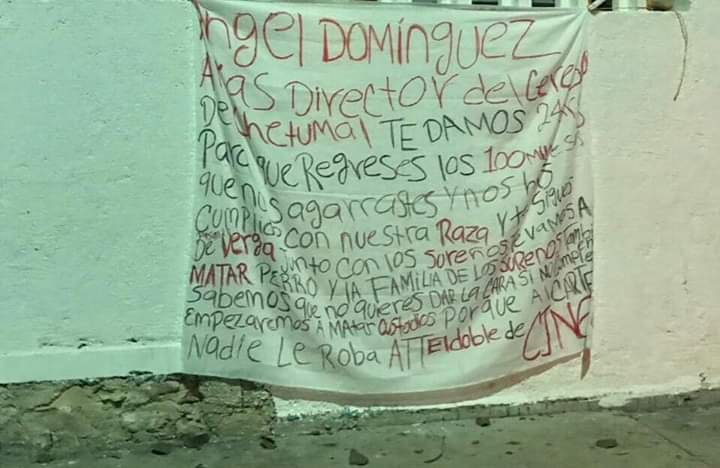 Angel Domínguez
Arias Director del Cereso
De Chetumal TE DAMOS 24Hs
Para que Regreses los 100 mil
que nos agarrastes y no nos
cumplias con nuestra Raza y te sigues
De verga junto con los sureños te vamos A
MATAR PERRO Y la FAMILIA DE LOS SUREÑOS También
Sabemos que no quieres DAR LA CARA SI NO cumples
EMPEZAREMOS A MAtar custodios porque Al CARTEL
Nadie Le Roba ATT El doble de CJNG